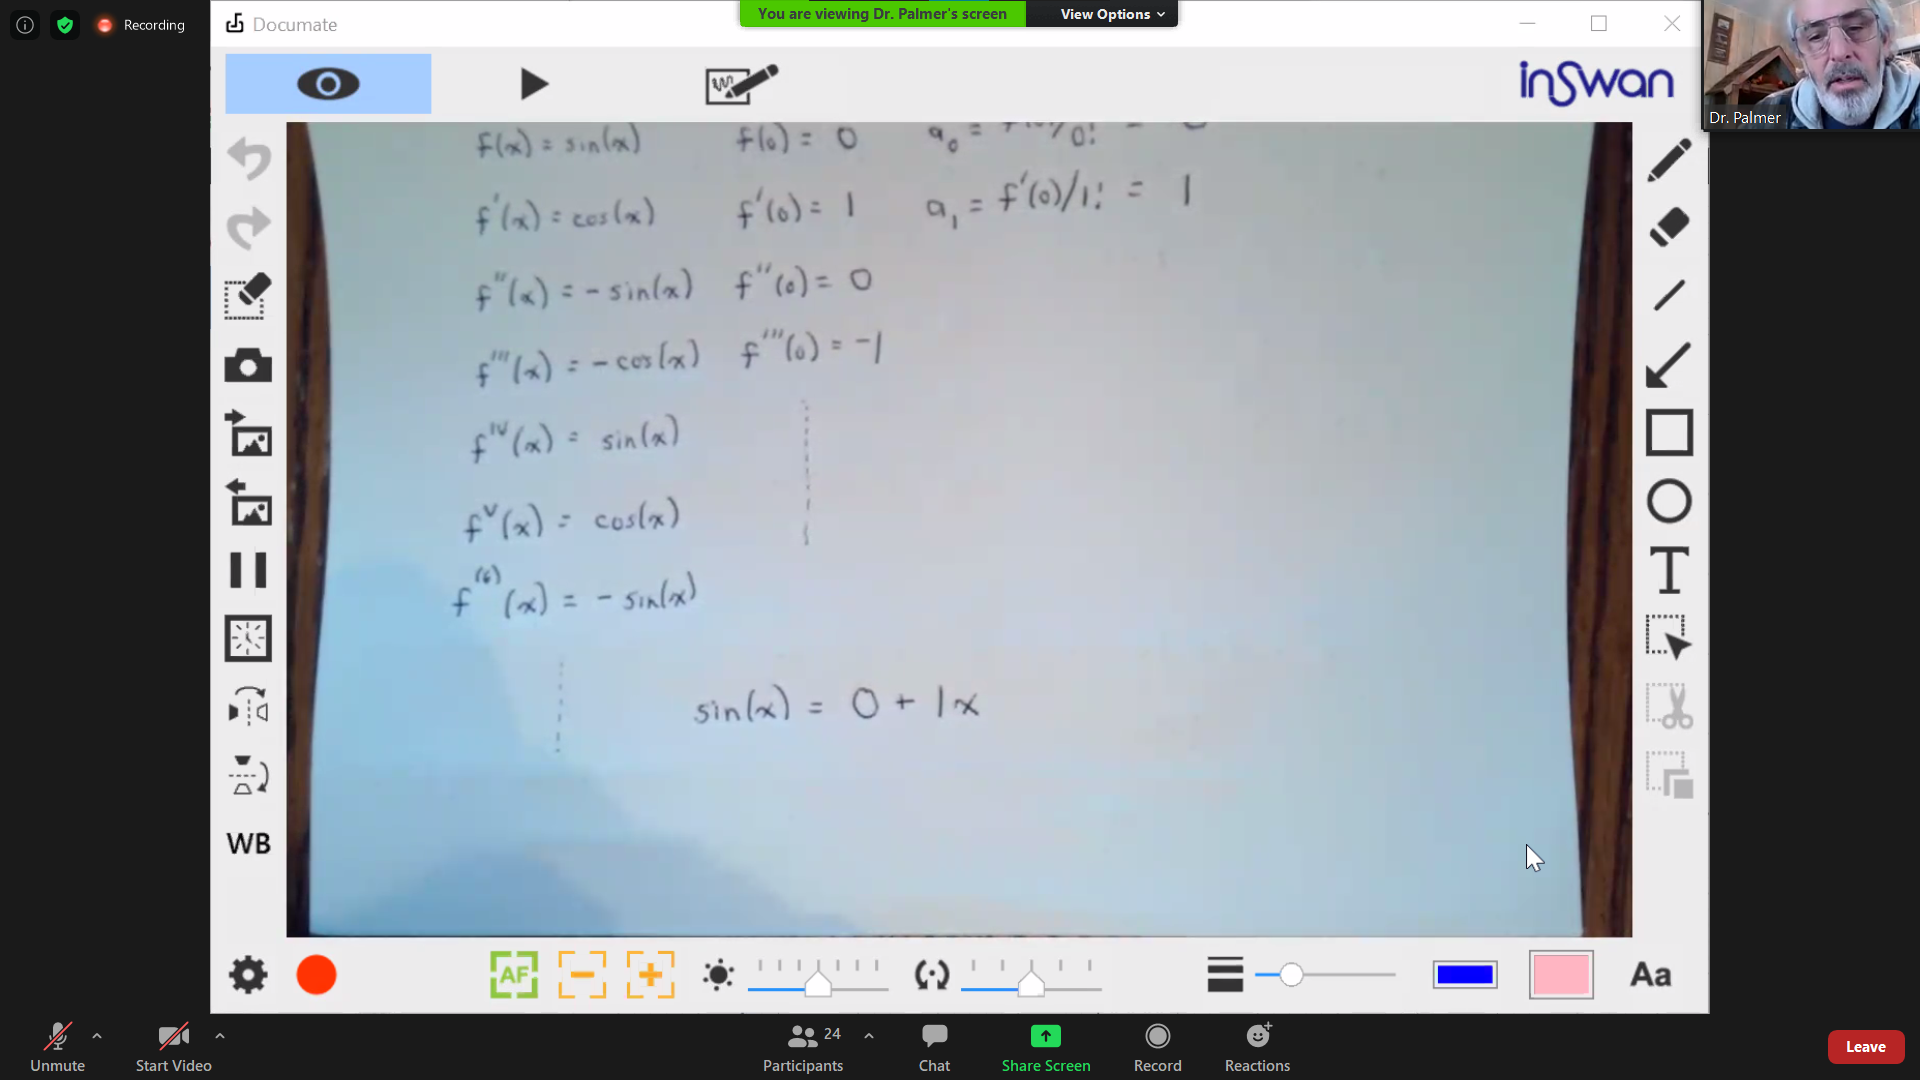 Recording
You are viewing Dr. Palmer's screen View Options
Documate
inswan
Dr. Palmer
f(x) = sin(x) f(0) = 0 a₀ = 0! =
f'(x) = cos(x) f'(0) = 1 a₁ = f'(0)/1! = 1
f''(x) = - sin(x) f''(0) = 0
f'''(x) = - cos(x) f'''(0) = -1
f^IV(x) = sin(x)
f^V(x) = cos(x)
f^(6)(x) = - sin(x)
sin(x) = 0 + 1x
T
WB
AF
Aa
24
Unmute Start Video Participants Chat Share Screen Record Reactions Leave